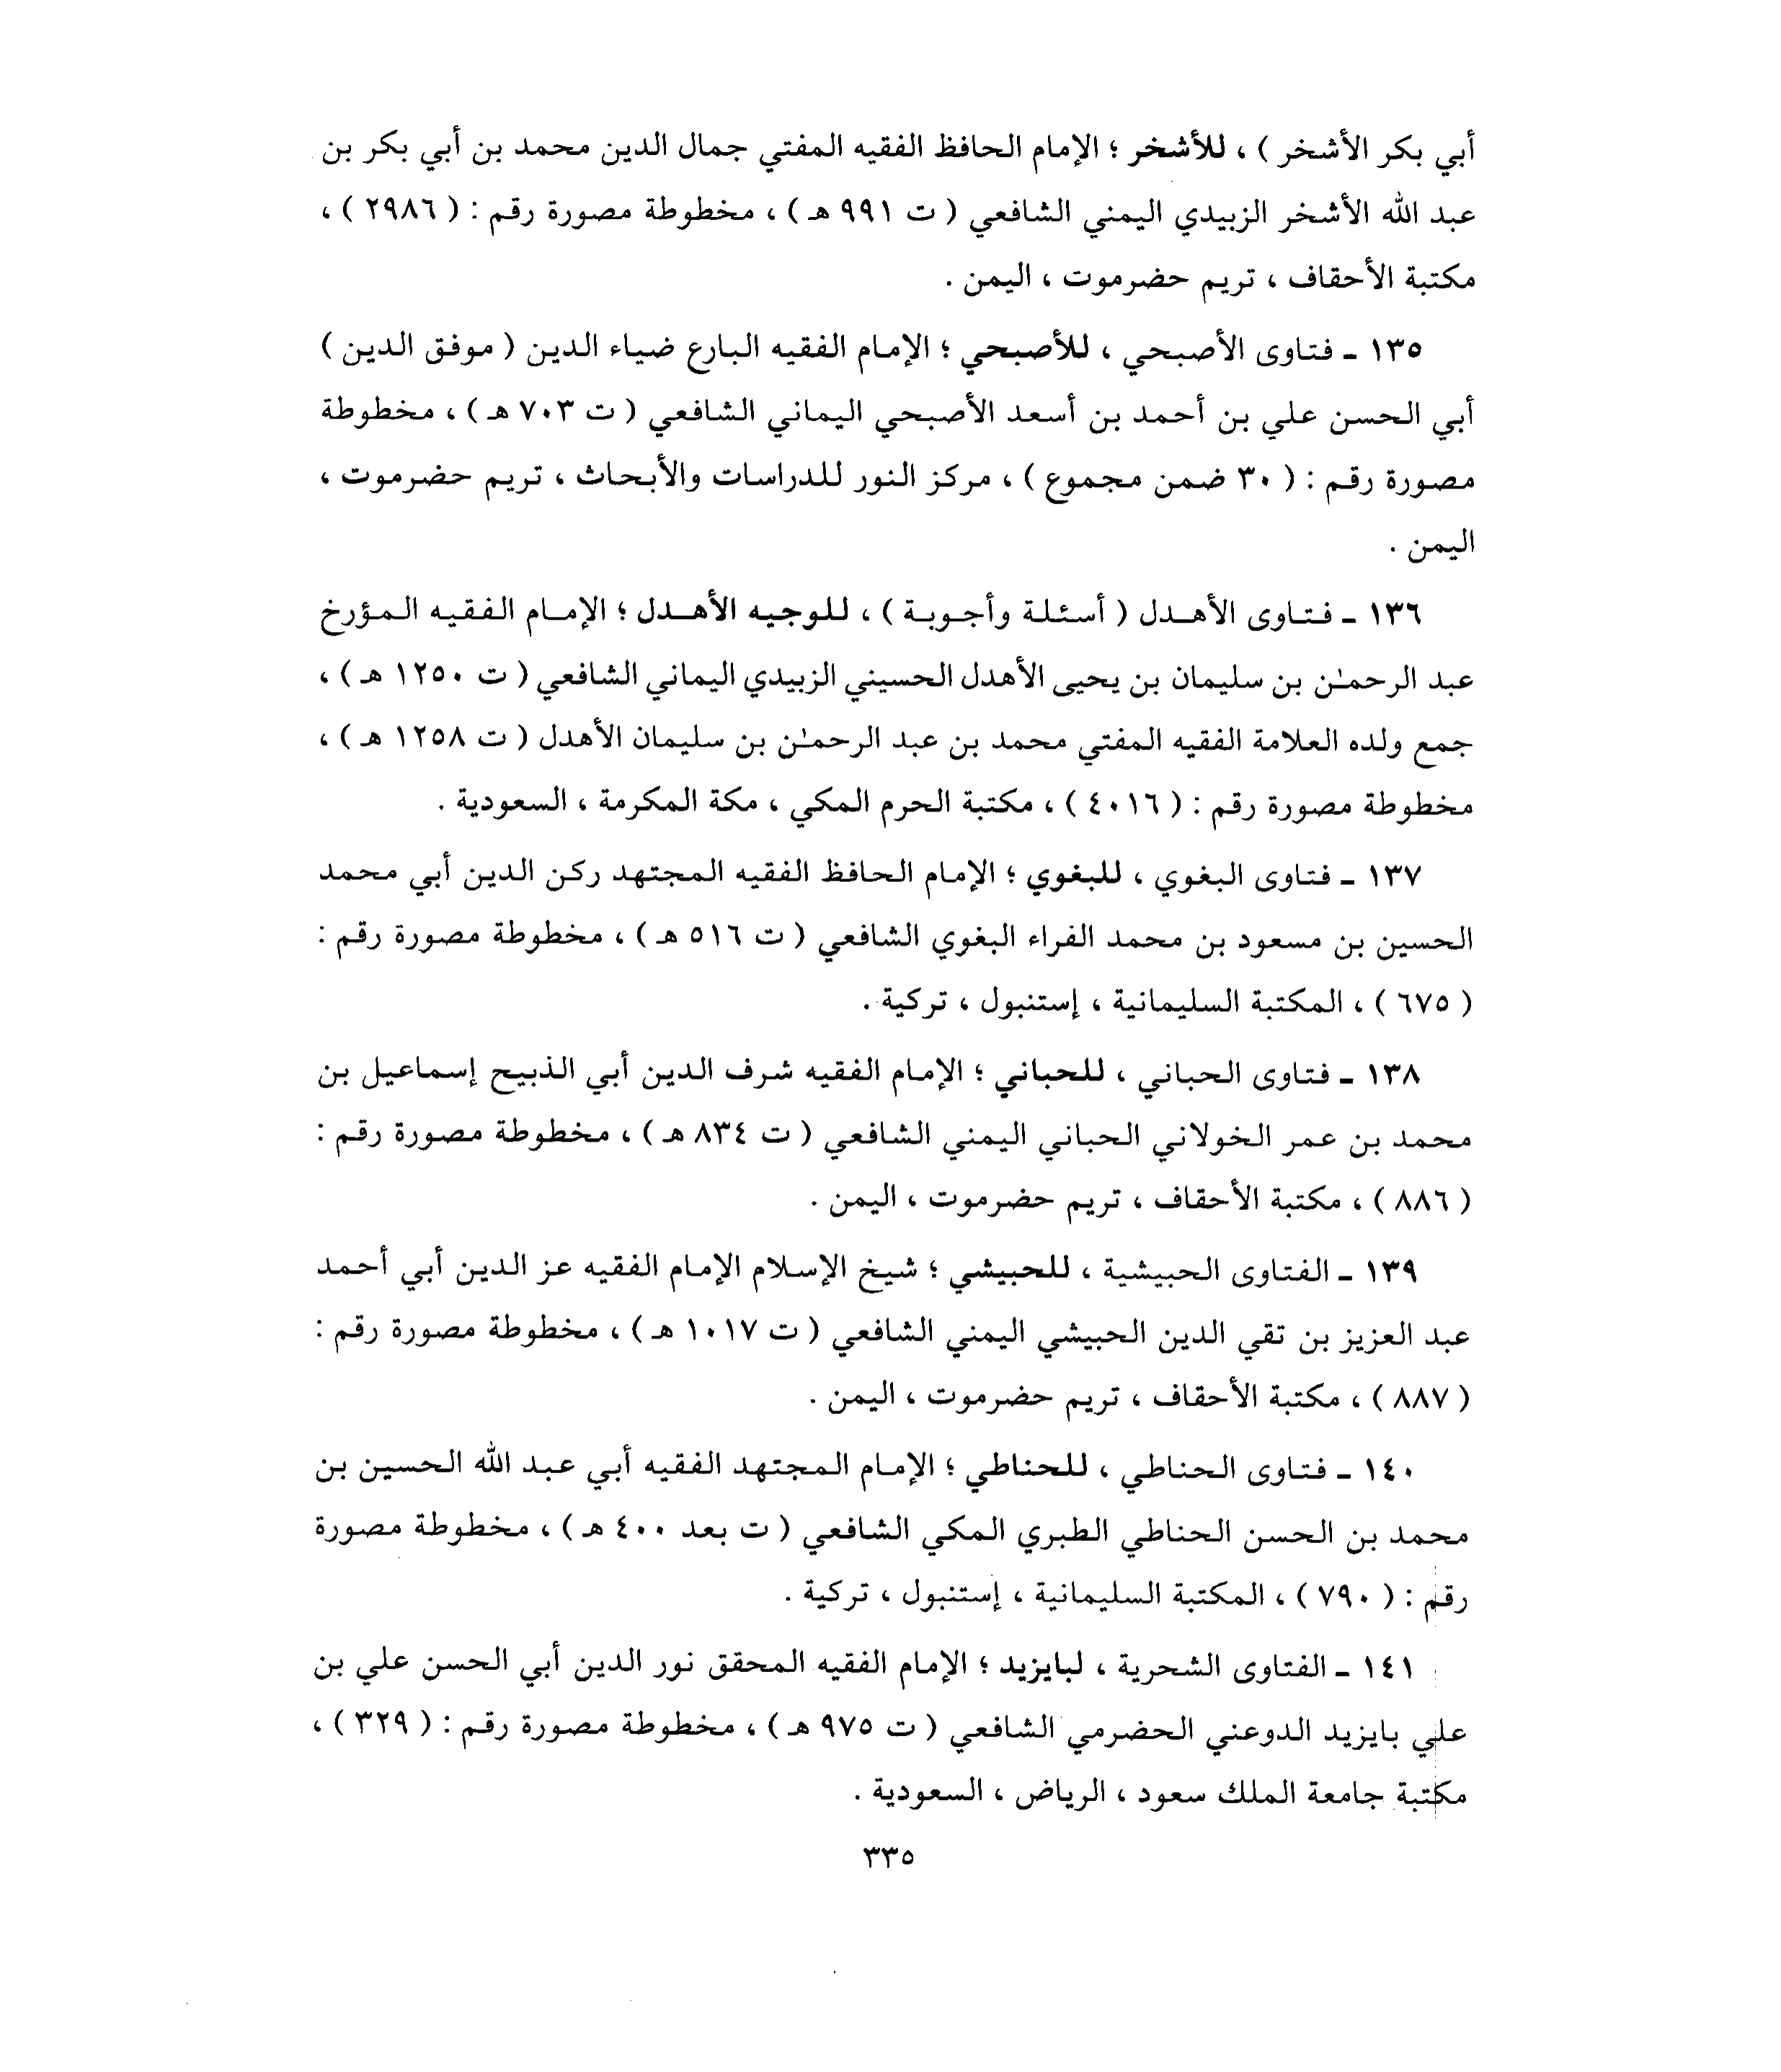 أبي بكر الأشخر ) ، للأشخر ؛ الإمام الحافظ الفقيه المفتي جمال الدين محمد بن أبي بكر بن
عبد الله الأشخر الزبيدي اليمني الشافعي ( ت ٩٩١ هـ ) ، مخطوطة مصورة رقم : ( ٢٩٨٦ ) ،
مكتبة الأحقاف ، تريم حضرموت ، اليمن .
١٣٥ ـ فتاوى الأصبحي ، للأصبحي ؛ الإمام الفقيه البارع ضياء الدين ( موفق الدين )
أبي الحسن علي بن أحمد بن أسعد الأصبحي اليماني الشافعي ( ت ٧٠٣ هـ ) ، مخطوطة
مصورة رقم : ( ٣٠ ضمن مجموع ) ، مركز النور للدراسات والأبحاث ، تريم حضرموت ،
اليمن .
١٣٦ ـ فتاوى الأهدل ( أسئلة وأجوبة ) ، للوجيه الأهدل ؛ الإمام الفقيه المؤرخ
عبد الرحمٰن بن سليمان بن يحيى الأهدل الحسيني الزبيدي اليماني الشافعي ( ت ١٢٥٠ هـ ) ،
جمع ولده العلامة الفقيه المفتي محمد بن عبد الرحمٰن بن سليمان الأهدل ( ت ١٢٥٨ هـ ) ،
مخطوطة مصورة رقم : ( ٤٠١٦ ) ، مكتبة الحرم المكي ، مكة المكرمة ، السعودية .
١٣٧ ـ فتاوى البغوي ، للبغوي ؛ الإمام الحافظ الفقيه المجتهد ركن الدين أبي محمد
الحسين بن مسعود بن محمد الفراء البغوي الشافعي ( ت ٥١٦ هـ ) ، مخطوطة مصورة رقم :
( ٦٧٥ ) ، المكتبة السليمانية ، إستنبول ، تركية .
١٣٨ ـ فتاوى الحباني ، للحباني ؛ الإمام الفقيه شرف الدين أبي الذبيح إسماعيل بن
محمد بن عمر الخولاني الحباني اليمني الشافعي ( ت ٨٣٤ هـ ) ، مخطوطة مصورة رقم :
( ٨٨٦ ) ، مكتبة الأحقاف ، تريم حضرموت ، اليمن .
١٣٩ ـ الفتاوى الحبيشية ، للحبيشي ؛ شيخ الإسلام الإمام الفقيه عز الدين أبي أحمد
عبد العزيز بن تقي الدين الحبيشي اليمني الشافعي ( ت ١٠١٧ هـ ) ، مخطوطة مصورة رقم :
( ٨٨٧ ) ، مكتبة الأحقاف ، تريم حضرموت ، اليمن .
١٤٠ ـ فتاوى الحناطي ، للحناطي ؛ الإمام المجتهد الفقيه أبي عبد الله الحسين بن
محمد بن الحسن الحناطي الطبري المكي الشافعي ( ت بعد ٤٠٠ هـ ) ، مخطوطة مصورة
رقم : ( ٧٩٠ ) ، المكتبة السليمانية ، إستنبول ، تركية .
١٤١ ـ الفتاوى الشحرية ، لبايزيد ؛ الإمام الفقيه المحقق نور الدين أبي الحسن علي بن
علي بايزيد الدوعني الحضرمي الشافعي ( ت ٩٧٥ هـ ) ، مخطوطة مصورة رقم : ( ٣٢٩ ) ،
مكتبة جامعة الملك سعود ، الرياض ، السعودية .
٣٣٥